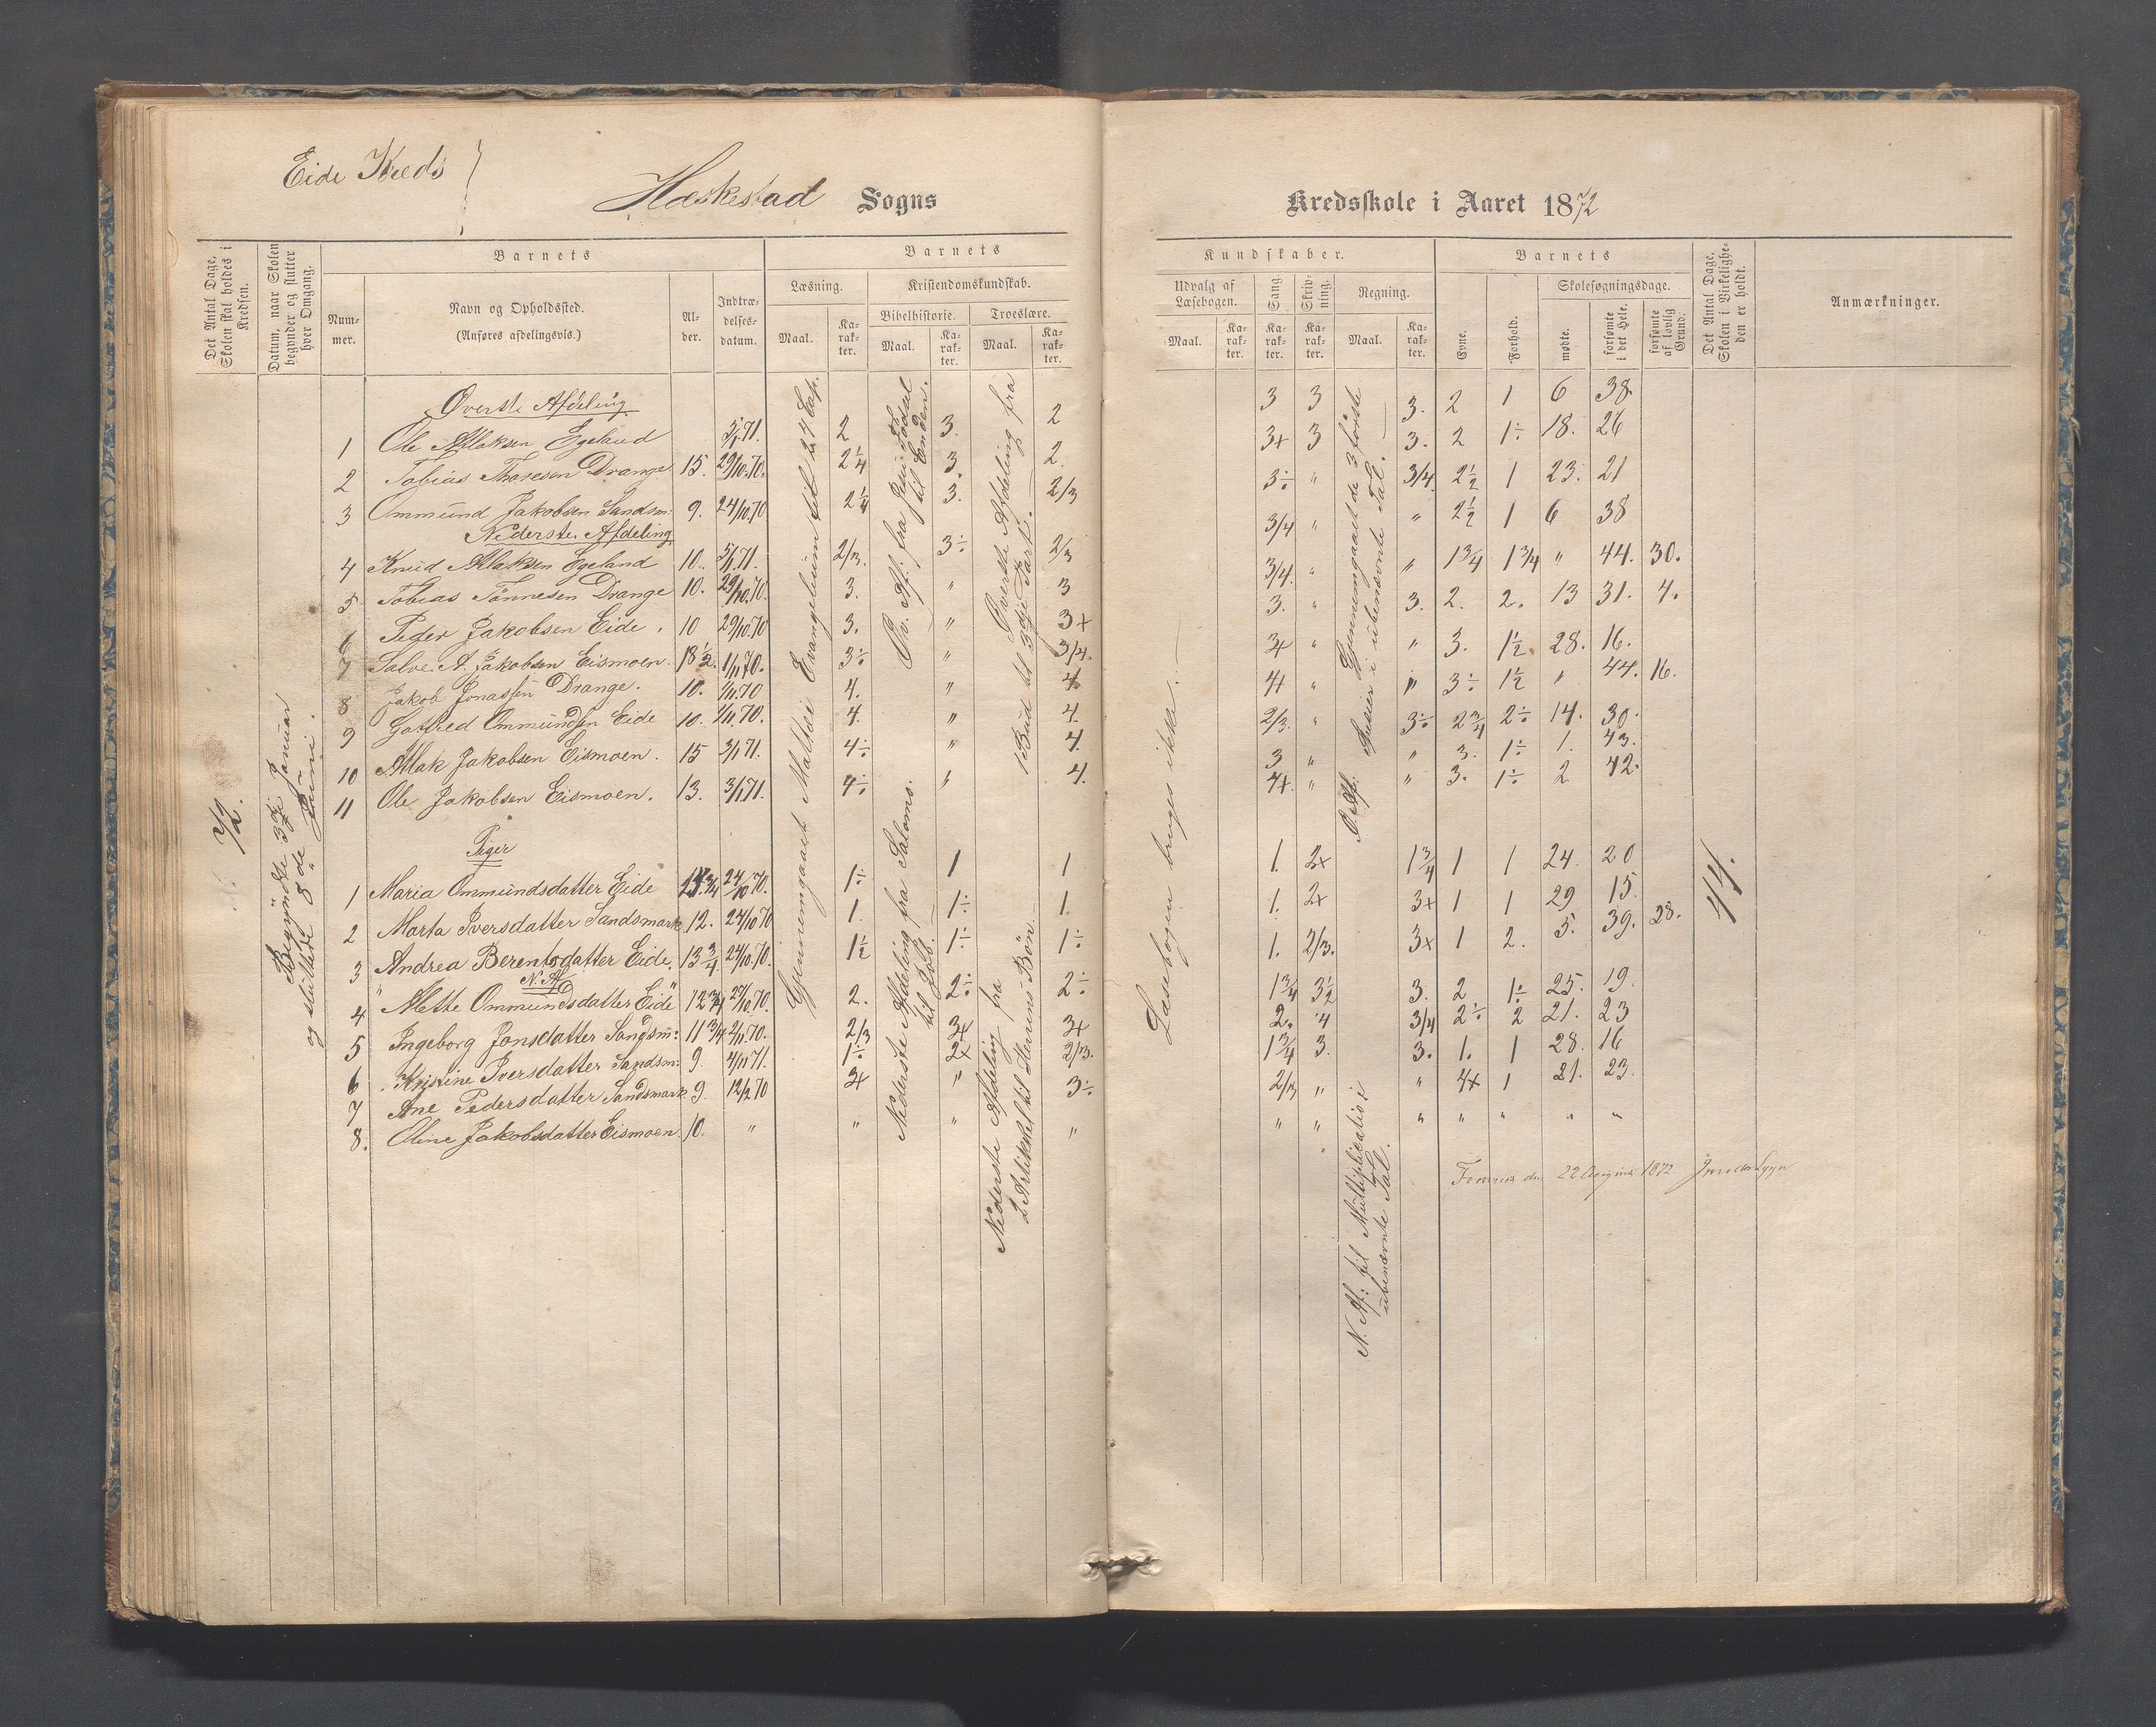 Eide Kreds
Heskestad Sogns
Kredsskole i Aaret 1872
Det Antal Dage, Skolen skal holdes i Kredsen.
Datum, naar Skolen begynder og slutter hver Omgang.
Barnets
Num-mer.
Navn og Opholdssted.
(Anføres afdelingsvis.)
Al-der.
Indtræ-delses-datum.
Barnets
Læsning.
Maal.
Ka-rak-ter.
Kristendomskundskab.
Bibelhistorie.
Maal.
Ka-rak-ter.
Troeslære.
Maal.
Ka-rak-ter.
Kundskaber.
Udvalg af Læsebogen.
Maal.
Ka-rak-ter.
Sang
Ka-rak-ter.
Skriv-ning.
Ka-rak-ter.
Regning.
Maal.
Ka-rak-ter.
Barnets
Evne.
Forhold.
Skolesøgningsdage.
mødte.
forsømte i det Hele.
forsømte af lovlig Grund.
Det Antal Dage, Skolen i Virkelighe-den er holdt.
Anmærkninger.
72.
Begyndte 3die Januar
og sluttede 8de Juni.
Gjennemgaaet Matthæi Evangelium til 24 Cap.
Øv. Af: fra
til Enden.
Nederste Afdeling fra Salomo
til Job.
Øverste Afdeling fra
1 Bud til 3die Part.
Nederste Afdeling fra
2 Artikkel til Herrens Bøn.
Læsebogen bruges ikke.
Ø. Af: Gjennemgaaet de 3 første
Species i ubenævnte Tal.
N. Af: til Multiplication i
ubenævnte Tal.
44.
Øverste Afdeling
1 Ole Atlaksen Egeland 5/1 71. 2 3. 2 3 3 3. 2 1 6 38.
2 Tobias Thoresen Drange 15. 29/10. 70. 2 1/4 3. 2. 3+ 3 3. 2 1÷ 18. 26
3 Ommund Jakobsen Sandsm: 9. 24/10 70 2 1/4 3. 2/3 3÷ " 3/4. 2 1/2 1 23. 21
Nederste Afdeling
4 Knud Atlaksen Egeland 10. 5/1 71. 2/3. 3÷ 2/3 3/4 " " 2 1/2 1 6 38
5 Tobias Tønnesen Drange 10. 29/10. 70. 3. " 3 3/4. " " 1 3/4 1 3/4 " 44. 30.
6 Peder Jakobsen Eide. 10 29/10. 70 3. " 3+ 3. " 3. 2. 2. 13 31. 4.
7 Salve A. Jakobsen Eismoen. 13 1/2. 1/11 70. 3÷ " 3/4. 3+ " " 3. 1 1/2 28. 16.
8 Jakob Jonassen Drange. 10. 1/11. 70 4. " 4. 4+ " " 3÷ 1 1/2 " 44. 16.
9 Gotfred Ommundsen Eide 10. 1/11. 70. 4. " 4. 2/3. " 3÷ 2 3/4 2÷ 14. 30.
10 Atlak Jakobsen Eismoen. 15 3/1 71. 4÷ " 4. 3 " " 3. 1÷ 1. 43.
11 Ole Jakobsen Eismoen. 13. 3/1 71. 4÷ " 4. 4+. " " 3. 1÷ 2 42.
Piger
1 Maria Ommundsdatter Eide 3/4 24/10 70. 1÷ 1 1 1. 2+ 1 3/4 1 1 24. 20
2 Marta Iversdatter Sandsmark 12. 24/10 70 1. 1÷ 1. 1. 2+ 3+ 1 1 29 15.
3 Andrea Berentsdatter Eide. 13 3/4 24/10. 70. 1 1/2 1÷ 1÷ 1. 2/3. 3+ 1 2. 5. 39. 28.
N. Af
4 Mette Ommundsdatter Eide 12 3/4 27/10. 70. 2. 2÷ 2÷ 1 3/4 3 1/2 3. 2 1÷ 25. 19.
5 Ingeborg Jonsdatter Sandsm: 11 3/4 2/11. 70. 2/3 3+ 3+ 2. 4 3/4 2÷ 2 21. 23
6 Kristine Iversdatter Sandsm: 9. 4/11 71. 1÷ 2+ 2/3. 1 3/4 3. 3. 1. 1 28. 16
7 Ane Pedersdatter Sandsmark 9. 12/2 70 3+ " 3÷ 2/3 " " 4+ 1 21. 23.
8. Oline Jakobsdatter Eismoen. 10. " " " " " " " " " " "
22 August 1872